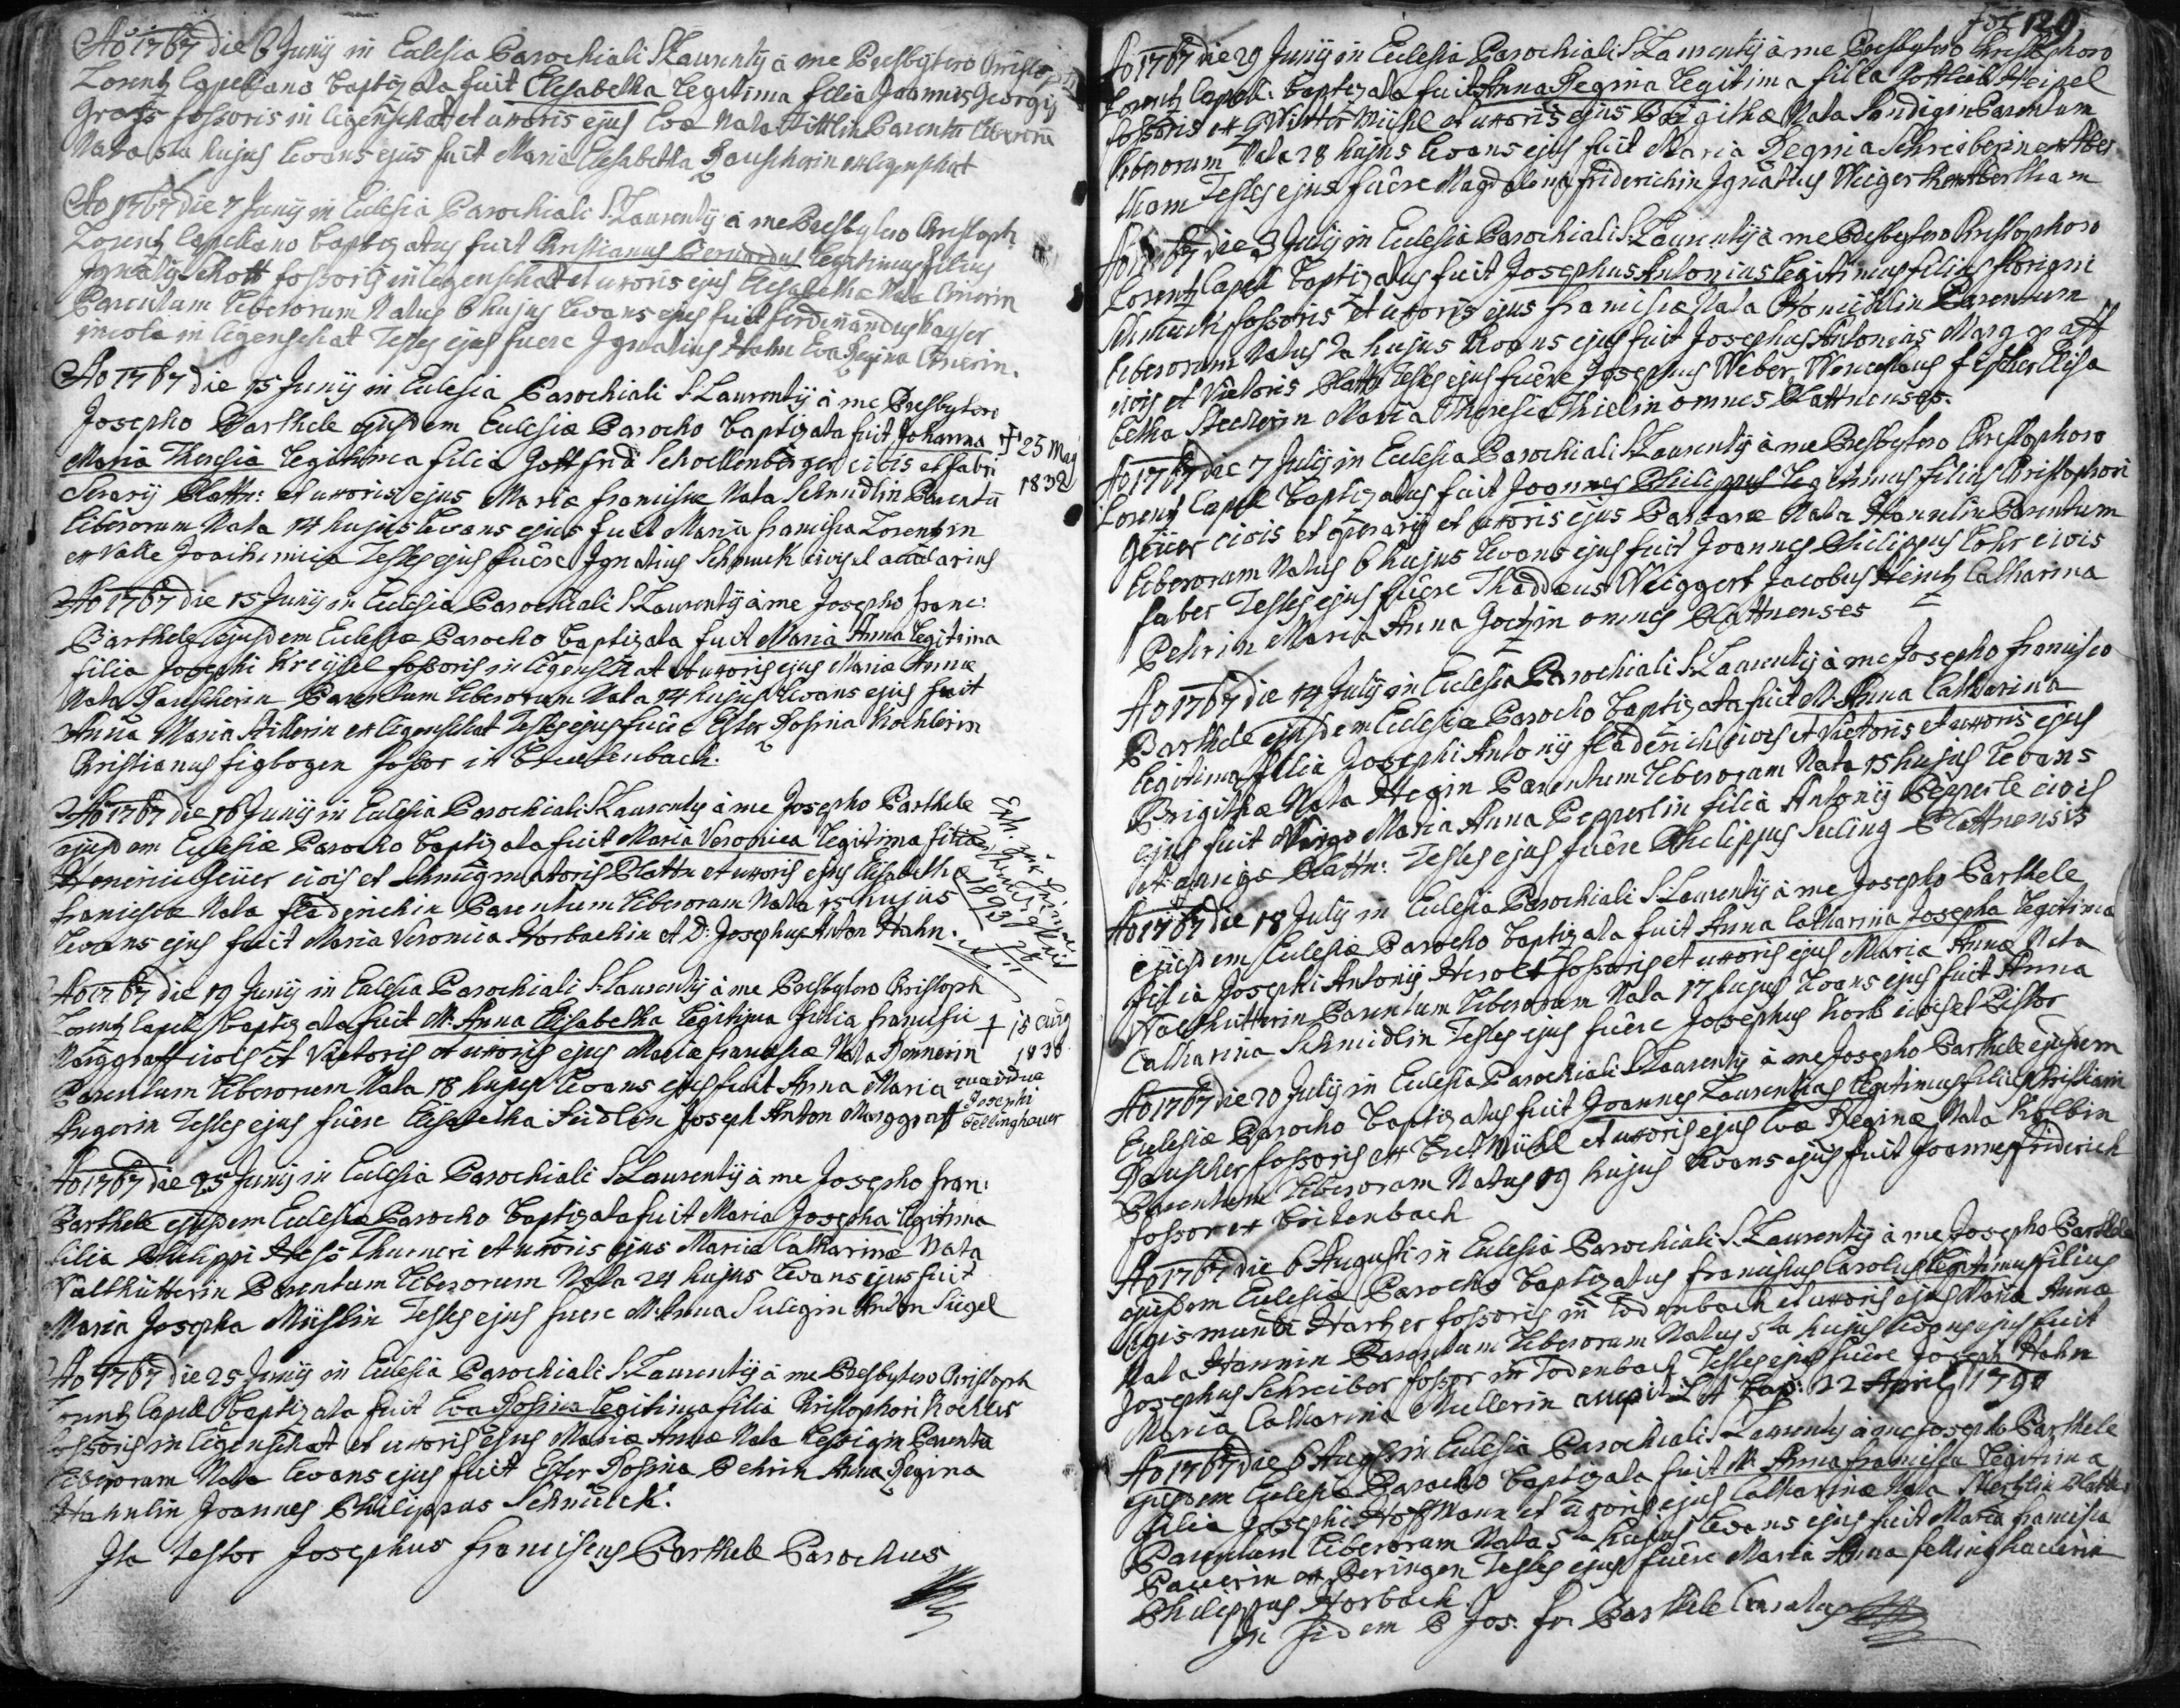 Ao 1767 die 6 Junij in Eclesia Parochiali S: Laurentij à me Presbytero Christoph
Lorentz Capellano baptizata fuit Elisabetha Legitima filia Joannis Georgij
fossoris in Eigenschat et uxoris ejus Evæ Nata Parentu Liberoru
Nata 5ta hujus Levans ejus fuit Maria Elisabetha Rauscherin ex Eigenschat
Ao 1767 die 7 Junij in Eclesia Parochiali S: Laurentij à me Presbytero Christoph
Lorentz Capellano baptizatus fuit Christianus Bernardus Legitimus filius
Ignatij Schott fossoris in Eigenschat et uxoris ejus Elisabethæ Nata
Parentum Liberorum Natus 6 hujus Levans ejus fuit Ferdinandus Kayser
incola in Eigenschat Testes ejus fuere Ignatius Hahn Eva Regina
Ao 1767 die 15 Junij in Eclesia Parochiali S: Laurentij à me Presbytero
Josepho Barthele ejusdem Eclesiæ Parocho baptizata fuit Johanna
Maria Theresia Legitima filia Gottfridi Schollenberger civis et fabri
Serarij Plattn: et uxoris ejus Mariæ Franciscæ Nata Schmidlin Parentu
Liberorum Nata 14 hujus Levans ejus fuit Maria Francisca Lorentzin
ex Valle Joachimica Testes ejus fuêre Ignatius Schmuck civis et
+ 25 Maj
1832
Ao 1767 die 15 Junij in Eclesia Parochiali S: Laurentij à me Josepho Franc:
Barthele ejusdem Eclesiæ Parocho baptizata fuit Maria Anna Legitima
filia Josephi Kreyssel fossoris in Eigenschat et uxoris ejus Mariæ Annæ
Nata Rauscherin Parentum Liberorum Nata 14 hujus Levans ejus fuit
Anna Maria Hillerin ex Eigenschat Testes ejus fuêre Ester Rosina Kohlerin
Christianus Figbogen fossor in
Ao 1767 die 16 Junij in Eclesia Parochiali S: Laurentij à me Josepho Barthele
ejusdem Eclesiæ Parocho baptizata fuit Maria Veronica Legitima filia
Henerici Geiier civis et Plattn et uxoris ejus Elisabethæ
Franciscæ Nata Fladerichin Parentum Liberorum Nata 15 hujus
Levans ejus fuit Maria Veronica Horbachin et D: Josephus Anton Hahn.
Ao 1767 die 19 Junij in Eclesia Parochiali S: Laurentij à me Presbytero Christoph
Lorentz Capell baptizata fuit M: Anna Elisabetha Legitima filia Francisci
Marggraff civis et Victoris et uxoris ejus Mariæ Franciscæ Nata Rennerin
Parentum Liberorum Nata 18 hujus Levans ejus fuit Anna Maria
Ungerin Testes ejus fuêre Elisabetha Seidlin Joseph Anton Marggraff
+ 18 Aug
1838
vidua
Josephi
Fellinghauer
Ao 1767 die 25 Junij in Eclesia Parochiali S: Laurentij à me Josepho Fran:
Barthele ejusdem Eclesiæ Parocho baptizata fuit Maria Josepha Legitima
filia Philippi Hess Thurneri et uxoris ejus Mariæ Catharinæ Nata
Valthütterin Parentum Liberorum Nata 24 hujus Levans ejus fuit
Maria Josepha Müslin Testes ejus fuere M: Anna Suligin Anton Siegel
Ao 1767 die 25 Junij in Eclesia Parochiali S: Laurentij à me Presbytero Christoph
Lorentz Capell baptizata fuit Eva Rosina Legitima filia Christophori Kochler
fossoris in Eigenschat et uxoris ejus Mariæ Annæ Nata Lessigin Parentu
Liberorum Nata Levans ejus fuit Ester Rosina Pehrin Anna Regina
Hahnlin Joannes Philippus Schmuck.
Ita testor Josephus Franciscus Barthele Parochus
fol 129
Ao 1767 die 29 Junij in Eclesia Parochiali S: Laurentij à me Presbytero Christophoro
Lorentz Capell: baptizata fuit Anna Regina Legitima filia Gottlieb Heipel
fossoris ex et uxoris ejus Brigithæ Nata Sandigin Parentum
Liberorum Nata 28 hujus Levans ejus fuit Maria Regina Schreiberin ex Aber
tham Testes ejus fuêre Magdalena Friderichin Ignatius Weigert ex Abertham
Ao 1767 die 3 Julij in Eclesia Parochiali S: Laurentij à me Presbytero Christophoro
Lorentz Capell baptizatus fuit Josephus Antonius Legitimus filius Floriani
Schmuck fossoris et uxoris ejus Franciscæ Nata Parentum
Liberorum Natus 2a hujus Levans ejus fuit Josephus Antonius Marggraff
civis et Victoris Plattn: Testes ejus fuêre Josephus Weber, Wenceslaus Fischer Elisa
betha Stecherin Maria Theresia Thielin omnes Plattnenses.
Ao 1767 die 7 Julij in Eclesia Parochiali S: Laurentij à me Presbytero Christophoro
Lorentz Capell baptizatus fuit Joannes Philippus Legitimus filius Christophori
Geiier civis et operarij et uxoris ejus Barbaræ Nata Parentum
Liberorum Natus 6 hujus Levans ejus fuit Joannes Philippus Lohr civis
faber Testes ejus fuêre Thaddæus Weiggert Jacobus Heintz Catharina
Pehrin Maria Anna Goetzin omnes Plattnenses
Ao 1767 die 14 Julij in Eclesia Parochiali S: Laurentij à me Josepho Francisco
Barthele ejusdem Eclesiæ Parocho baptizata fuit M: Anna Catharina
Legitima filia Josephi Antonij Fladerich civis et Victoris et uxoris ejus
Brigithæ Nata Hegin Parentum Liberorum Nata 15 hujus Levans
ejus fuit Virgo Maria Anna Pepperlin filia Antonij Pepperle civis
et aurigæ Plattn: Testes ejus fuêre Philippus Suling Plattnensis
Ao 1767 die 18 Julij in Eclesia Parochiali S: Laurentij à me Josepho Barthele
ejusdem Eclesiæ Parocho baptizata fuit Anna Catharina Josepha Legitima
filia Josephi Antonij Herolt fossoris et uxoris ejus Maria Annæ Nata
Valthütterin Parentum Liberorum Nata 17 hujus Levans ejus fuit Anna
Catharina Schmidlin Testes ejus fuêre Josephus Korb civis et Pistor
Ao 1767 die 20 Julij in Eclesia Parochiali S: Laurentij à me Josepho Barthele ejusdem
Eclesiæ Parocho baptizatus fuit Joannes Laurentius Legitimus filius Christiani
Rauscher fossoris ex et uxoris ejus Evæ Reginæ Nata Kolbin
Parentum Liberorum Natus 19 hujus Levans ejus fuit Joannes Friderich
fossor ex
Ao 1767 die 6 Augusti in Eclesia Parochiali S: Laurentij à me Josepho Barthele
ejusdem Eclesiæ Parocho baptizatus Franciscus Carolus Legitimus filius
Sigismundi Hartzer fossoris in Todenbach et uxoris ejus Mariæ Annæ
Nata Hannin Parentum Liberorum Natus 5ta hujus Levans ejus fuit
Josephus Schreiber fossor in Todenbach Testes ejus fuêre Joseph Hahn
Maria Catharina Mullerin Lit Bap: 22 April 1790
Ao 1767 die 6 Aug: in Eclesia Parochiali S: Laurentij à me Josepho Barthele
ejusdem Eclesiæ Parocho baptizata fuit M: Anna Francisca Legitima
filia Josephi Hoffmann et uxoris ejus Catharinæ Nata
Parentum Liberorum Nata 5ta hujus Levans ejus fuit Maria Francisca
Pauerin ex Peringen Testes ejus fuêre Maria Anna Fellinghauerin
Philippus Horbach
In fidem P Jos: Fr: Barthele Curatus